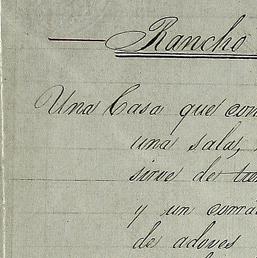 Rancho
Una Casa que con
una sala,
sirve de
y un
de adoves